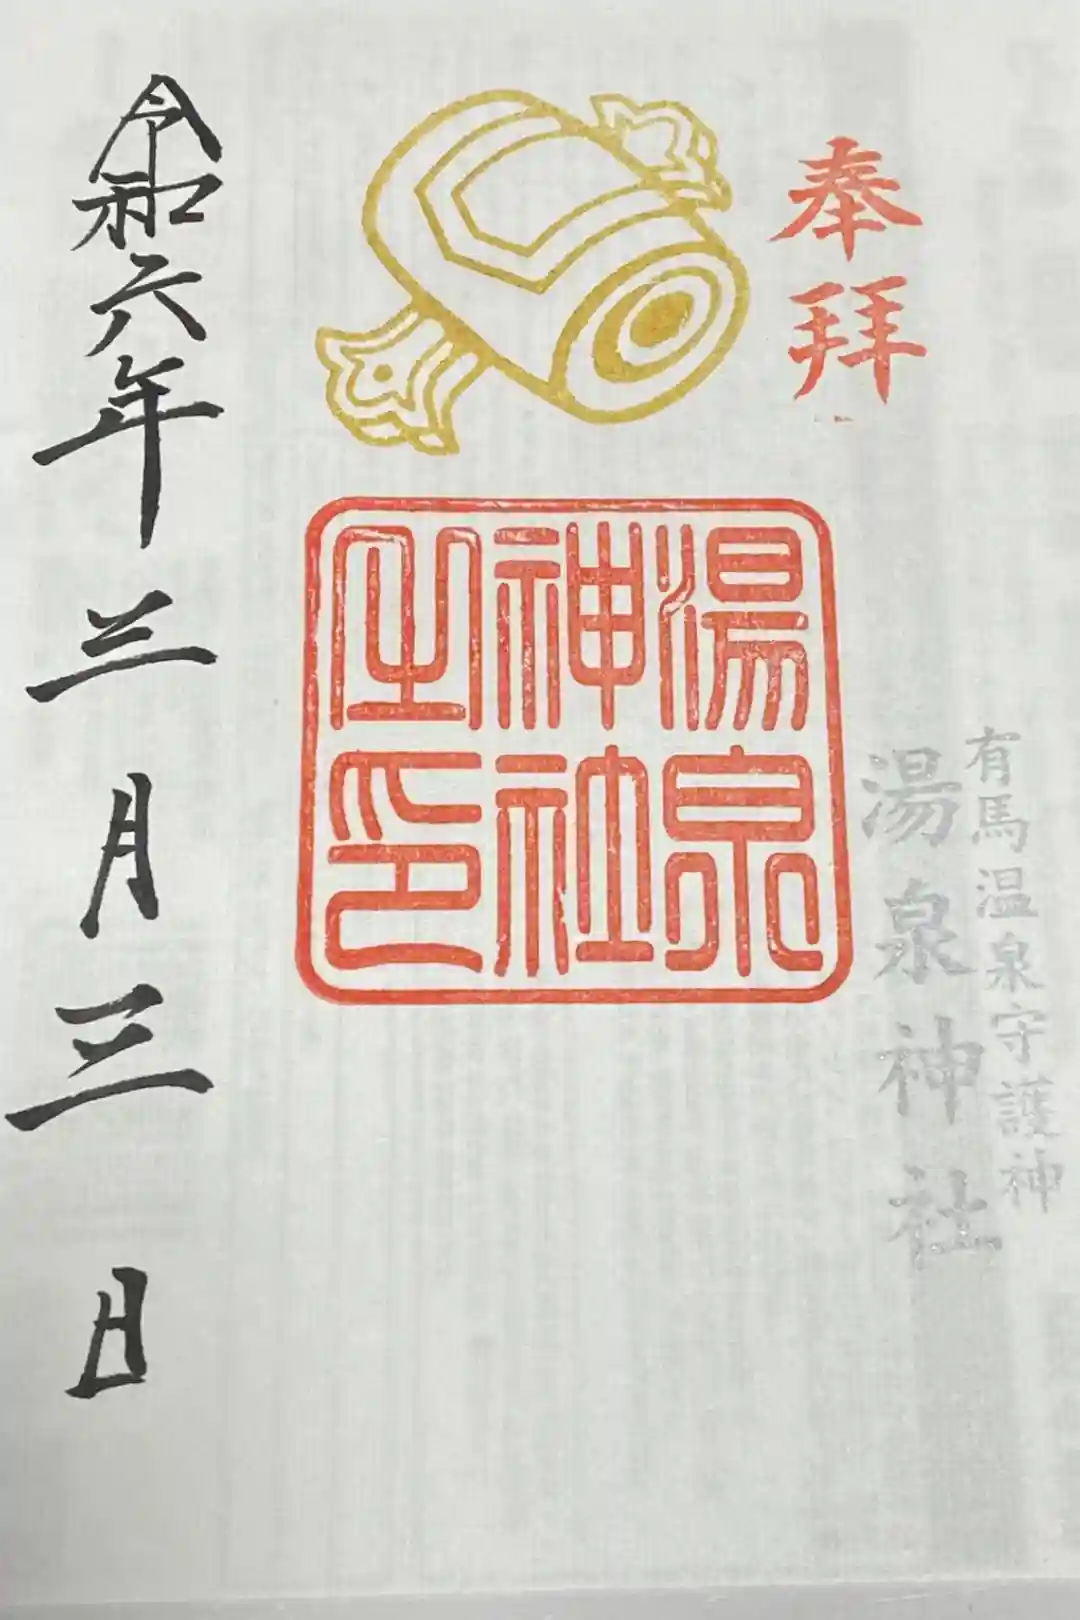 奉拝
有馬温泉守護神
湯泉神社
湯泉
神社
之印
令和六年三月三日